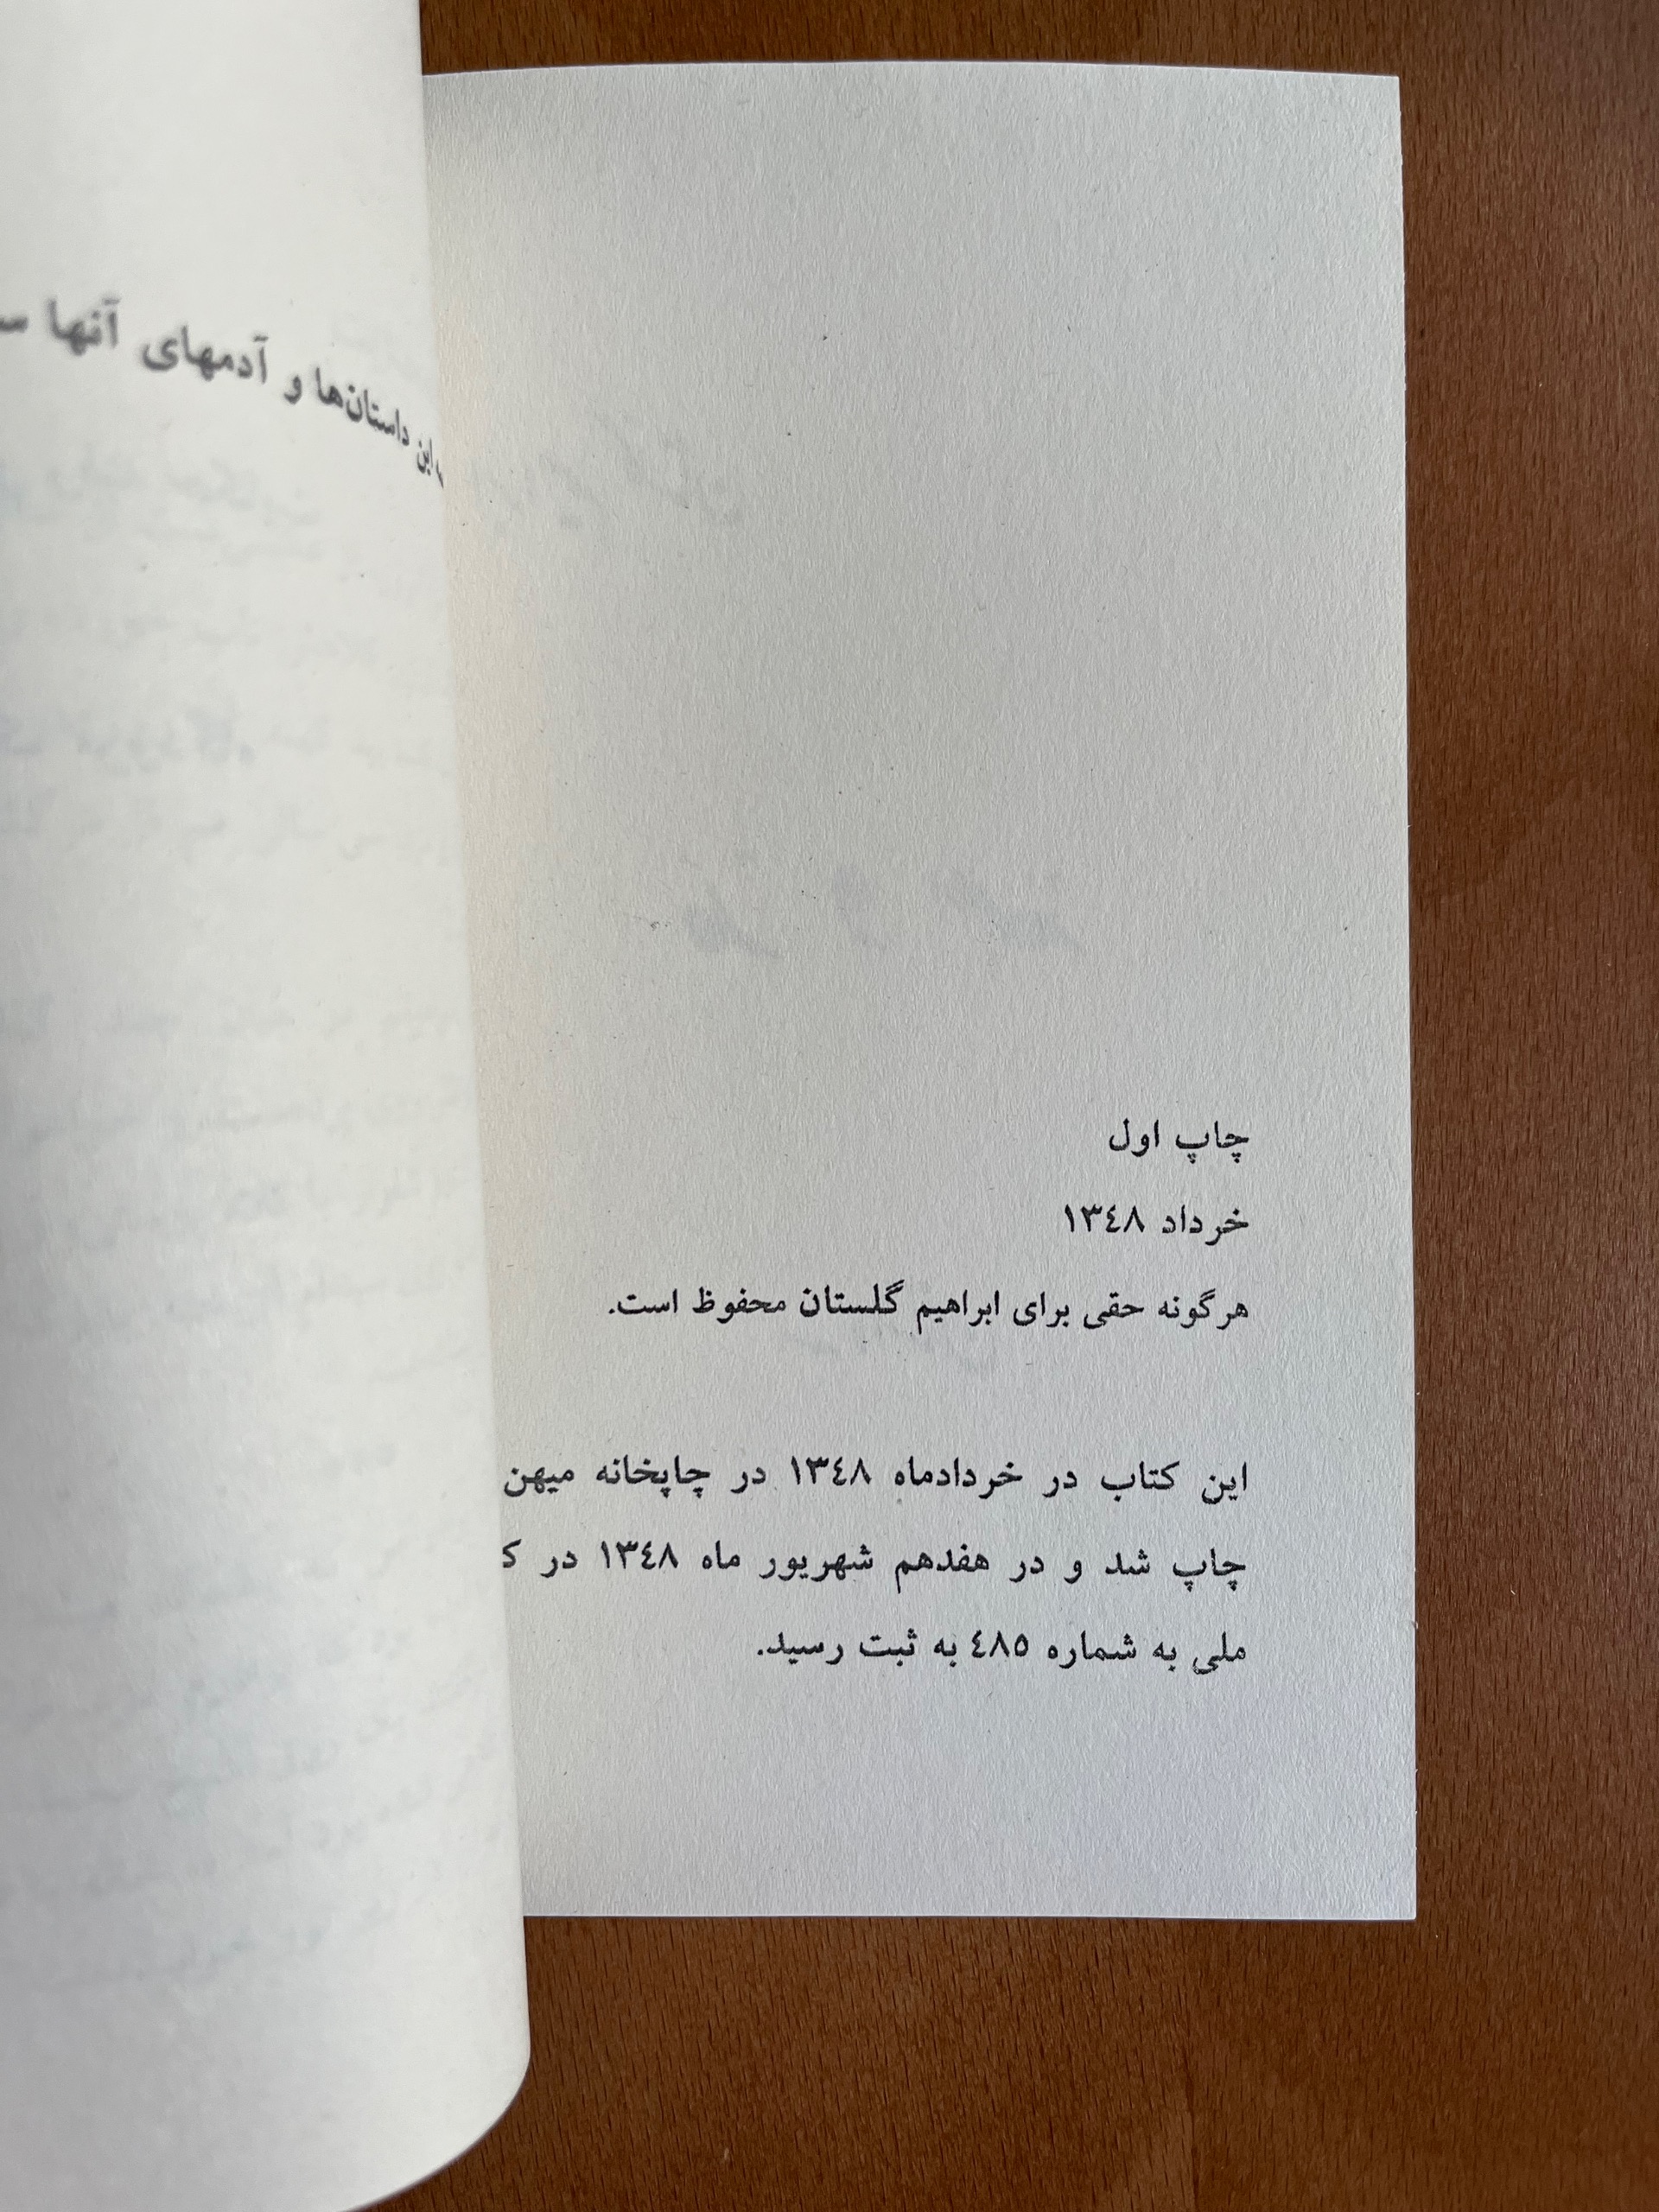 چاپ اول
خرداد ١٣٤٨
هرگونه حقی برای ابراهیم گلستان محفوظ است.
این کتاب در خردادماه ١٣٤٨ در چاپخانه میهن
چاپ شد و در هفدهم شهریور ماه ١٣٤٨ در ک
ملی به شماره ٤٨٥ به ثبت رسید.
این داستان‌ها و آدمهای آنها